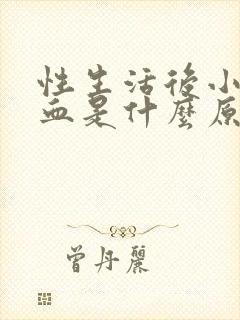 性生活後小
血是什麼原
曾丹麗